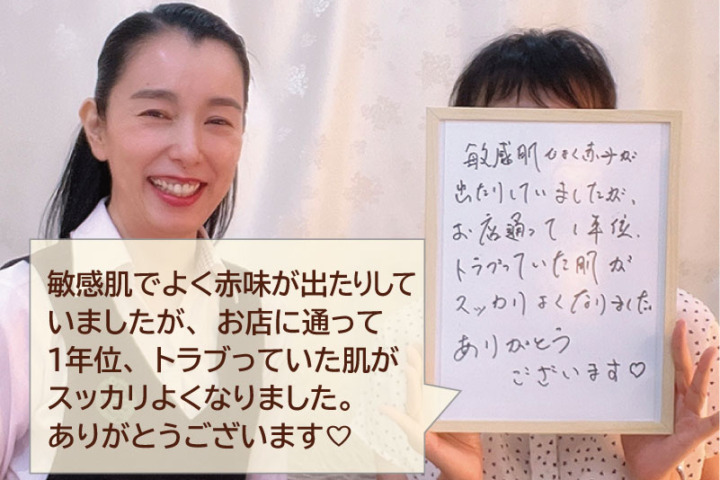 敏感肌でよく赤みが
出たりしていましたが、
お店通って1年位、
トラブっていた肌が
スッカリよくなりました
ありがとう
ございます♡
敏感肌でよく赤味が出たりして
いましたが、お店に通って
1年位、トラブっていた肌が
スッカリよくなりました。
ありがとうございます♡